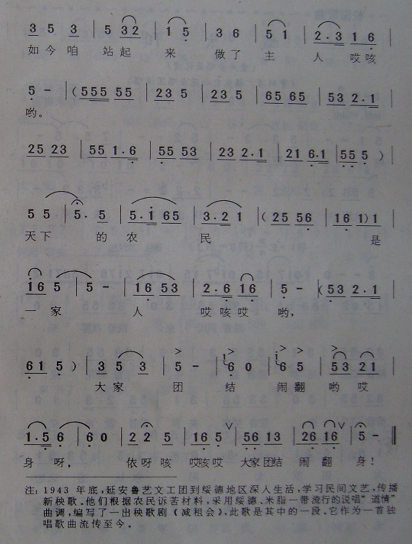 3 5 3 | 5 32 | 1 5 | 3 6 | 5 1 | 2·3 1 6 |
如今咱 站起 来 做了 主 人 哎咳
5 - | (555 55 | 235 | 235 | 65 65 | 53 2·1 |
哟。
25 23 | 55 1·6 | 55 53 | 23 2·1 | 21 6·1 | 55 5 )
5 5 | 5· 5 | 5·i 65 | 3·2 1 | (25 56 | 16 1) 1 |
天下 的 农 民 是
i 6 5 | 16 53 | 2·6 16 | 5 - | (53 2·1 |
一家 人 哎咳哎 哟,
61 5 ) | 3 5 3 | 5 - | 6 0 | 6 5 | 53 21 |
大家 团 结 闹翻 哟哎
1·5 6 | 6 0 | 2 2 5 | 16 5 | 56 13 | 26 16 | 5 - ‖
身 呀, 依呀咳 哎咳哎 大家团结 闹翻 身!
注：1943 年底，延安鲁艺文工团到绥德地区深人生活，学习民间文艺，传播
新秧歌。他们根据农民诉苦材料，采用绥德、米脂一带流行的说唱“道情”
曲调，编写了一出秧歌剧《减租会》，此歌是其中的一段。它作为一首独
唱歌曲流传至今。